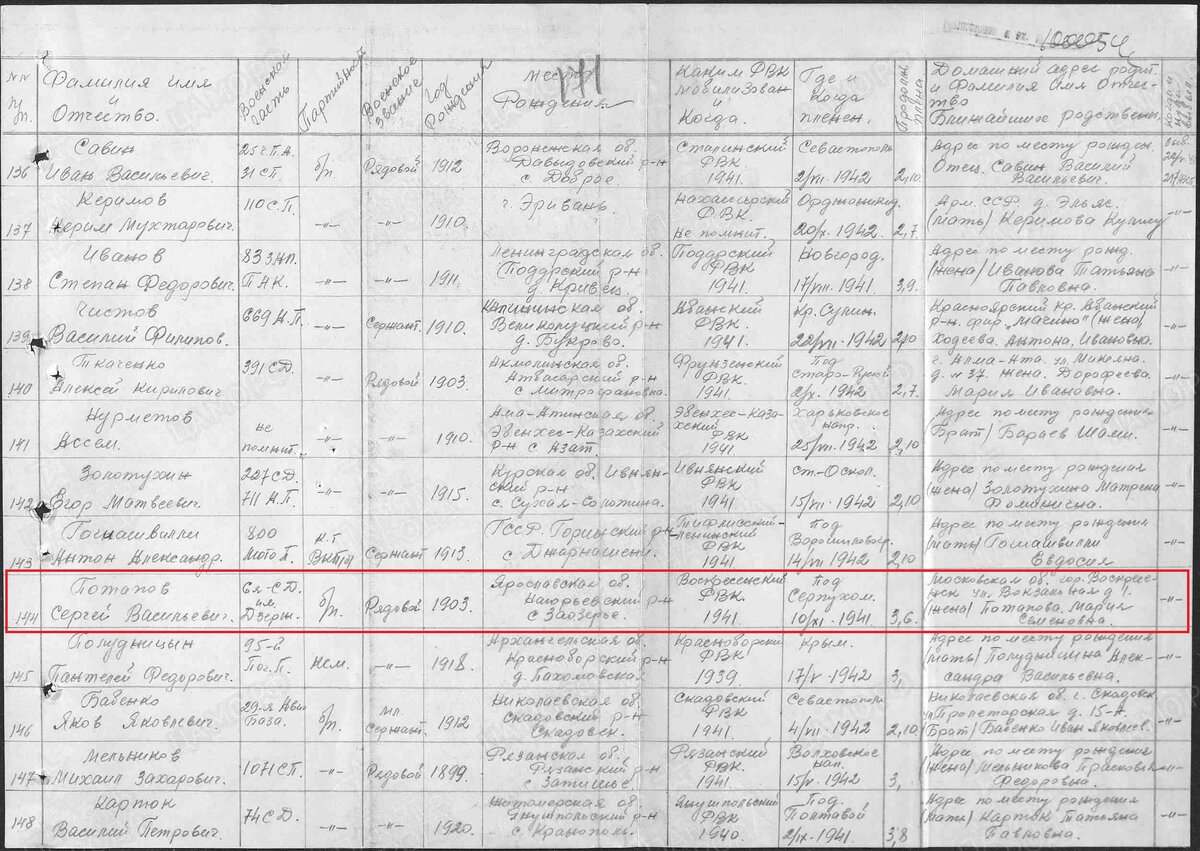 171
NN п/п. Фамилия имя и Отчество. Военская часть Партийность Военское звание Год Рождения Место Рождения Каким РВК мобилизован и Когда. Где и Когда пленен. Продолж. плена Домашний адрес родит. и Фамилия Имя Отчество Ближайших родствен.
136 Савин Иван Васильевич. 31 СП. б/п Рядовой 1912 Воронежская об. Давыдовский р-н с. Доброе. Сталинский РВК 1941. Севастополь 2/VII. 1942 2,10. Адрес по месту рожден. Отец. Савин Василий Васильевич.
137 Керимов Керим Мухтарович. 110 С.П. -"- -"- 1910. г. Эривань. РВК. Не помнит. Орджоникид. 20/X. 1942. 2,7. Арм. ССР. д. Эльяс. (мать) Керимова -"-
138 Иванов Степан Федорович. -"- -"- 1911. Ленинградская об. Поддорский р-н д. Кривец. Поддорский РВК 1941. Новгород. 17/VIII. 1941 3,9. Адрес по месту рожд. (жена) Иванова Татьяна Павловна. -"-
139 Чистов Василий Филипов. 669 А.П. -"- Сержант. 1910. Калининская об. Великолуцкий р-н д. Букрово. Абанский РВК. 1941. 1942 2,10 Красноярский кр. Абанский р-н. (жена) Ходеева. Антона. Ивановна. -"-
140 Ткаченко Алексей Кирилович. 391 СД. -"- Рядовой 1903. Акмолинская об. Атбасарский р-н с. Митрофановка. Фрунзенский РВК 1941. Под Старо-Русой 1942 2,7. г. Алма-Ата. ул. Микояна. д. №37 жена. Дорофеева Мария Ивановна. -"-
141 Нурметов Ассам. не помнит. -"- -"- 1910. Ама-Атинская об. Эвенхес-Казахский р-н с Азат. Эвенхес-Казахский РВК 1941 Харьковское напр. 25/VI. 1942 2,10 Адрес по месту рождения (Брат) Бараев Шами. -"-
142 Золотухин Егор Матвеевич. 227 СД. 711 А.П -"- -"- 1915. Курская об. Ивнянский р-н с. Сухая-Солотина. Ивнянский РВК 1941. ст.-Оскол. 15/VII. 1942 2,10 Адрес по месту рождения (жена) Золотухина Матрена Фоминична. -"-
143 Гогнасивилли Антон Александр. 800 Мото П. К.Т ВКП/б Сержант 1913. ГССР Горийский р-н Тифлисский-Ленинский РВК 1941. Под Ворошиловгр. 14/VII 1942 2,10 Адрес по месту рождения (мать) Гошашвилли Евдосия -"-
144 Потапов Сергей Васильевич. 6я-С.Д. им. Дзерж. б/п. Рядовой 1903. Ярославская об. Нагорьевский р-н с Заозерье. Воскресенский РВК. 1941. Под Серпухом. 10/XI. 1941. 3,6. Московская об. гор. Воскресенск ул. Вокзальная д 1. (жена) Потапова. Мария Семеновна. -"-
145 Полудницын Пантелей Федорович. 95-й Пог. П. нем. -"- 1918. Архангельская об. Красноборский р-н д. Пахомовская Красноборский РВК 1939. Крым. 17/V 1942 3, Адрес по месту рождения (мать) Полудницина Александра Васильевна. -"-
146 Бабенко Яков Яковлевич. 29-я Авио База. б/п мл. Сержант. 1912 Николаевская об. Скадовский р-н Скадовск. Скадовский РВК 1941. Севастополь 4/VII 1942 2,10 Николаевская об. г. Скадовск ул Пролетарская д. 15-А (Брат) Бабенко Иван Яковлев. -"-
147 Мельников Михаил Захарович. 1071 СП. -"- Рядовой 1899. Рязанская об. Рязанский р-н с. Затишье. Рязанский РВК. 1941. Волховское нап. 15/V 1942 3, Адрес по месту рождения (жена) Мельникова Прасковья Федоровна. -"-
148 Карток Василий Петрович. 74 СД. -"- -"- 1920. Житомерская об. Янушпольский р-н с. Краснополь. Янушпольский РВК. 1940. Под Полтавой 2/IX. 1941. 3,8 Адрес по месту рождения (мать) Карток Татьяна Павловна. -"-